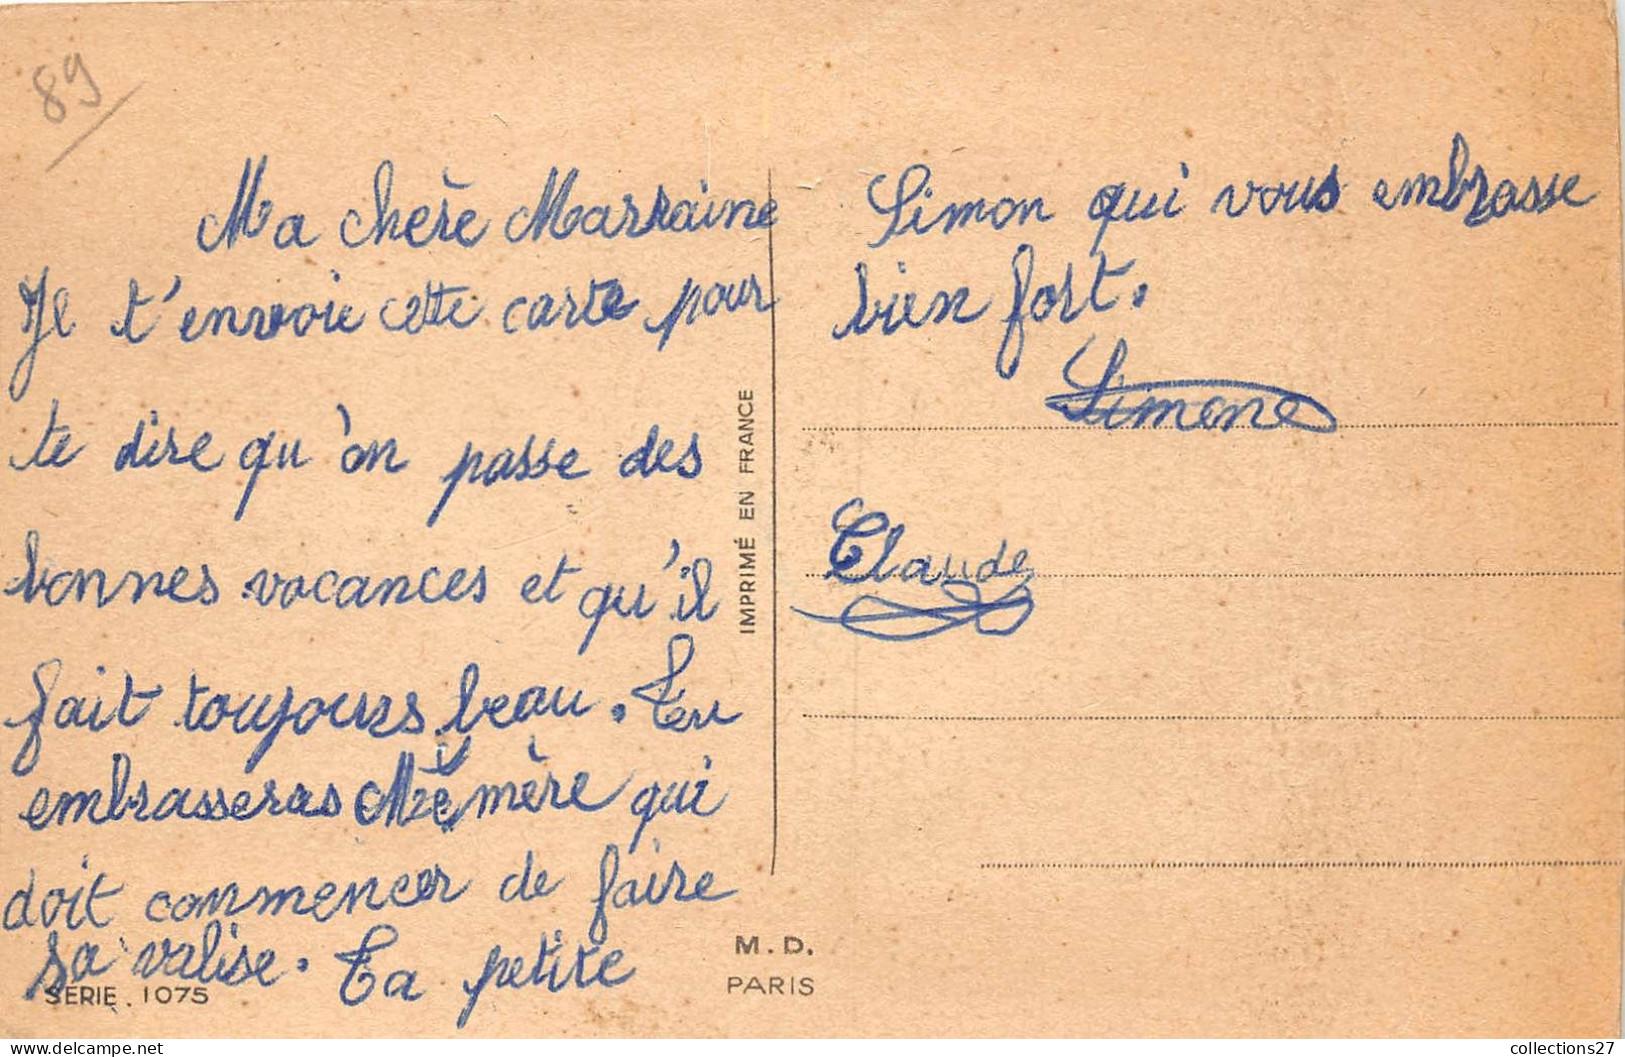 89
Ma chère Marraine
Je t'envoie cette carte pour
te dire qu'on passe des
bonnes vacances et qu'il
fait toujours beau. Tu
embrasseras Mémère qui
doit commencer de faire
sa valise. Ta petite
SÉRIE. 1075
IMPRIMÉ EN FRANCE
M.D.
PARIS
Simon qui vous embrasse
bien fort.
Simone
Claude
collections27